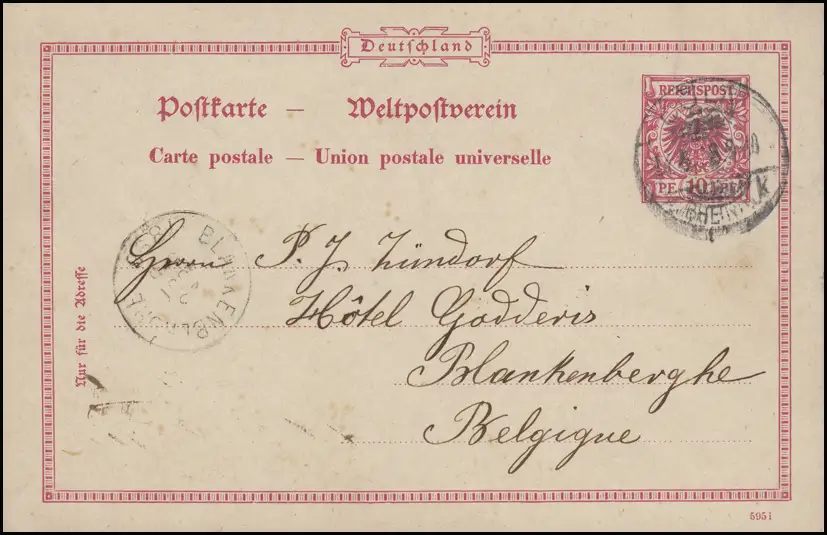 Deutschland
Postkarte — Weltpostverein
Carte postale — Union postale universelle
REICHSPOST
PF 10 PF
Nur für die Adresse
Herrn P. J. Zündorf
Hôtel Godderis
Blankenberghe
Belgique
5951